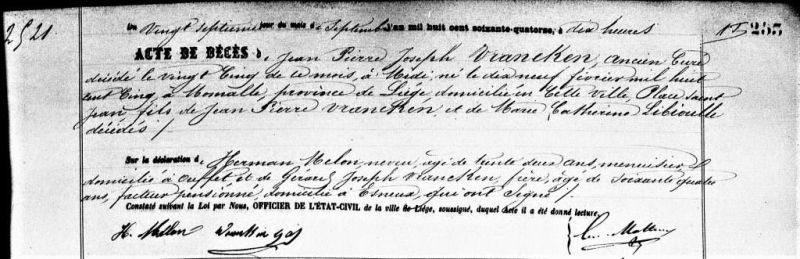 2521.
Du vingt septième jour du mois de Septembre l'an mil huit cent soixante-quatorze, à dix heures
237
ACTE DE DÉCÈS de Jean Pierre Joseph Vrancken, ancien Curé
décédé le vingt Cinq de ce mois, à Midi, né le dix neuf février mil huit
cent Cinq à Momalle, province de Liége domicilié en Cette Ville, Place Saint
Jean fils de Jean Pierre Vrancken, et de Marie Catherine Libioulle
décédés /
Sur la déclaration de Herman Melon, neveu, âgé de trente deux ans, menuisier
domicilié à Ouffet et de Gérard Joseph Vrancken, frère, âgé de soixante quatre
ans, facteur pensionné, domicilié à Esneux, qui ont signé /
Constaté suivant la Loi par Nous, OFFICIER DE L'ÉTAT-CIVIL de la ville de Liége, soussigné, duquel acte il a été donné lecture.
H. Melon